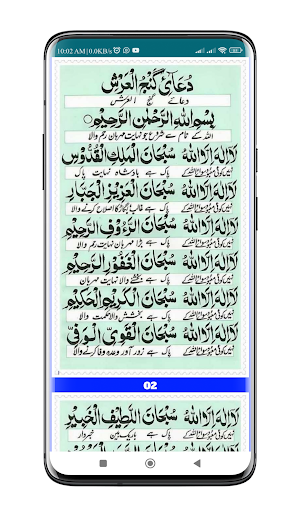 10:02 AM | 0.0KB/s
دُعَائے گَنْجُ الْعَرْش
دعائے گنج العرش
بِسْمِ اللهِ الرَّحْمٰنِ الرَّحِيْمِ
اللہ کے نام سے شروع جو نہایت مہربان رحم والا
لَا اِلٰهَ اِلَّا اللهُ سُبْحَانَ الْمَلِكِ الْقُدُّوْسِ
نہیں کوئی معبود سوائے اللہ کے پاک ہے بادشاہ نہایت پاک
لَا اِلٰهَ اِلَّا اللهُ سُبْحَانَ الْعَزِيْزِ الْجَبَّارِ
نہیں کوئی معبود سوائے اللہ کے پاک ہے غالب بگاڑ کا اصلاح کرنے والا
لَا اِلٰهَ اِلَّا اللهُ سُبْحَانَ الرَّءُوْفِ الرَّحِيْمِ
نہیں کوئی معبود سوائے اللہ کے پاک ہے بڑا مہربان نہایت رحم والا
لَا اِلٰهَ اِلَّا اللهُ سُبْحَانَ الْغَفُوْرِ الرَّحِيْمِ
نہیں کوئی معبود سوائے اللہ کے پاک ہے بخشنے والا مہربان
لَا اِلٰهَ اِلَّا اللهُ سُبْحَانَ الْكَرِيْمِ الْحَكِيْمِ
نہیں کوئی معبود سوائے اللہ کے پاک ہے بخشش والا حکمت والا
لَا اِلٰهَ اِلَّا اللهُ سُبْحَانَ الْقَوِيِّ الْوَفِيِّ
نہیں کوئی معبود سوائے اللہ کے پاک ہے زور آور وعدہ وفا کرنے والا
02
لَا اِلٰهَ اِلَّا اللهُ سُبْحَانَ اللَّطِيْفِ الْخَبِيْرِ
نہیں کوئی معبود سوائے اللہ کے پاک ہے باریک بین خبردار